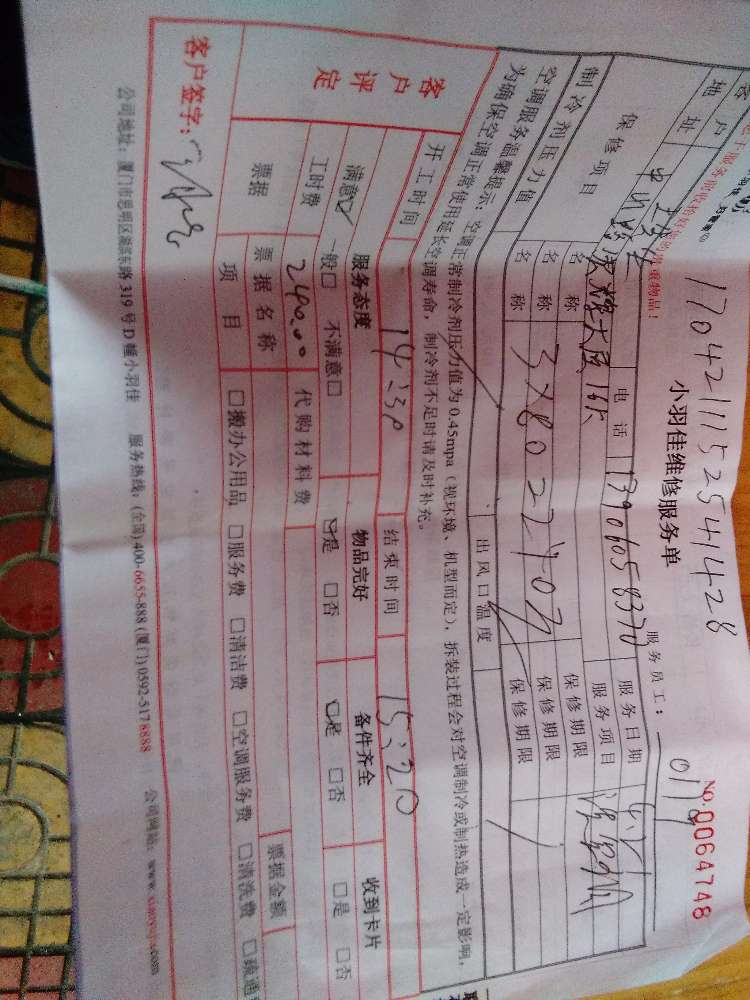 1704211152541428
小羽佳维修服务单
NO.0064748
服务员工：
地址
电话 13906058370
服务日期
保修项目
服务项目
名称
保修期限
名称 3×80=240元
保修期限
名称
保修期限
制冷剂压力值
出风口温度
空调服务温馨提示：空调正常制冷剂压力值为0.45mpa（视环境、机型而定），拆装过程会对空调制冷或制热造成一定影响，
为确保空调正常使用延长空调寿命，制冷剂不足时请及时补充。
开工时间 14:30 结束时间 15:20
客户评定
服务态度 物品完好 备件齐全 收到卡片
满意☑ 一般□ 不满意□ ☑是 □否 ☑是 □否 □是 □否
工时费 240.00 代购材料费
票据 票据名称 票据金额
项目 □搬办公用品 □服务费 □清洁费 □空调服务费 □清洗费 □疏通
客户签字：
公司地址：厦门市思明区 319号D幢小羽佳 服务热线：(全国)400-6655-888 (厦门)0592-5178888 公司网站：